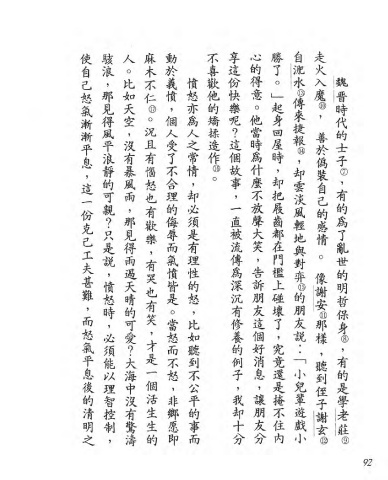 魏晉時代的士子⑦，有的為了亂世的明哲保身⑧，有的是學老莊⑨
走火入魔⑩，善於偽裝自己的感情。像謝安⑪那樣，聽到侄子謝玄⑫
自淝水⑬傳來捷報⑭，却雲淡風輕地與對弈⑮的朋友說：「小兒輩遊戲小
勝了。」起身回屋時，却把屐齒都在門檻上碰壞了，究竟還是掩不住內
心的得意。他當時為什麼不放聲大笑，告訴朋友這個好消息，讓朋友分
享這份快樂呢？這個故事，一直被流傳為深沉有修養的例子，我却十分
不喜歡他的矯揉造作⑯。
憤怒亦為人之常情，却必須是有理性的怒，比如聽到不公平的事而
動於義憤，個人受了不合理的侮辱而氣憤皆是。當怒而不怒，非鄉愿即
麻木不仁⑰。況且有惱怒也有歡樂，有哭也有笑，才是一個活生生的
人。比如天空，沒有暴風雨，那見得雨過天晴的可愛？大海中沒有驚濤
駭浪，那見得風平浪靜的可親？只是說，憤怒時，必須能以理智控制，
使自己怒氣漸漸平息，這一份克己工夫甚難，而怒氣平息後的清明之
92